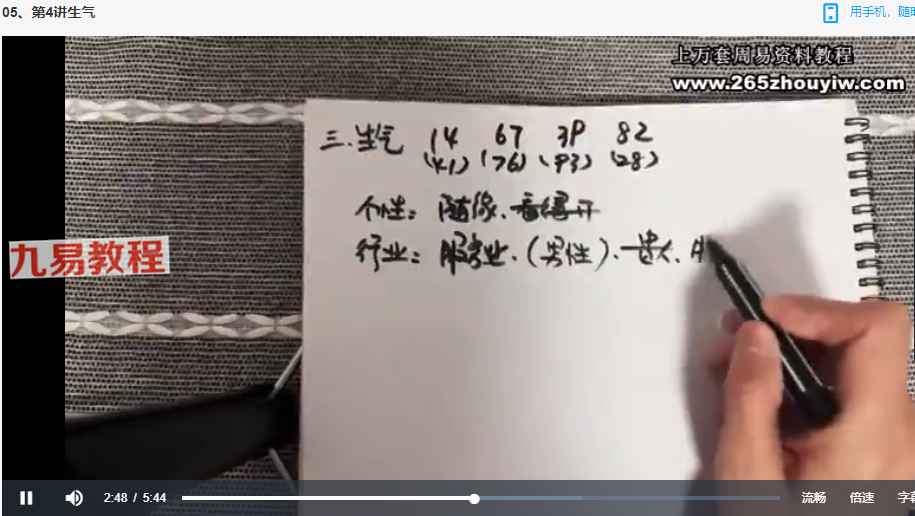 05、第4讲生气
用手机，随
上万套周易资料教程
www.265zhouyiw.com
三.生气 14 67 39 82
(41) (76) (93) (28)
个性：随缘、看得开
九易教程
行业：服务业、(男性)、贵人、
2:48 / 5:44 流畅 倍速 字